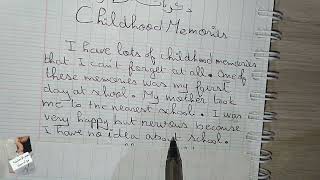 Childhood Memories
I have lots of childhood memories
that I can't forget at all. One of
these memories was my first
day at school. My mother took
me to the nearest school. I was
very happy but nervous because
I have no idea about school.